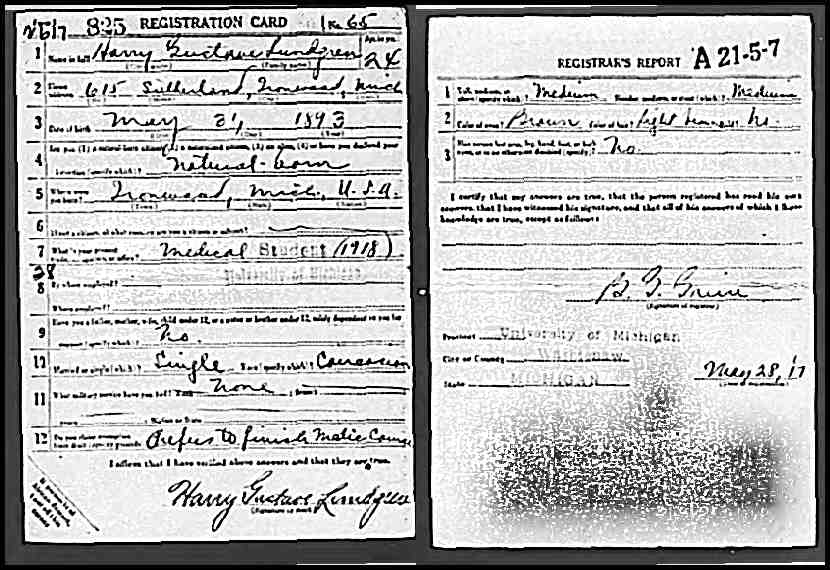 825 REGISTRATION CARD No. 65
Age, in yrs.
1 Name in full Harry Gustave Lundgren 24
(Given name) (Family name)
2 Home address 615 Sutherland, Ironwood, Mich
3 Date of birth May 31, 1893
(Month) (Day) (Year)
4 Are you (1) a natural-born citizen, (2) a naturalized citizen, (3) an alien, (4) or have you declared your
intention (specify which)? Natural-born
5 Where were you born? Ironwood, Mich., U.S.A.
(Town) (State) (Nation)
6 If not a citizen, of what country are you a citizen or subject?
7 What is your present trade, occupation, or office? Medical Student (1918)
38 University of Michigan
8 By whom employed?
Where employed?
9 Have you a father, mother, wife, child under 12, or a sister or brother under 12, solely dependent on you for
support (specify which)? No
10 Married or single (which)? Single Race (specify which)? Caucasian
11 What military service have you had? Rank None ; branch
years ; Nation or State
12 Do you claim exemption from draft (specify grounds)? Prefers to finish Medic Course
I affirm that I have verified above answers and that they are true.
Harry Gustave Lundgren
(Signature or mark)
REGISTRAR'S REPORT A 21-5-7
1 Tall, medium, or short (specify which)? Medium Slender, medium, or stout (which)? Medium
2 Color of eyes? Brown Color of hair? Light brown Bald? No.
3 Has person lost arm, leg, hand, foot, or both eyes, or is he otherwise disabled (specify)? No.
I certify that my answers are true, that the person registered has read his own
answers, that I have witnessed his signature, and that all of his answers of which I have
knowledge are true, except as follows:
(Signature of registrar)
Precinct University of Michigan
City or County Washtenaw
State MICHIGAN May 28, '17
(Date of registration)